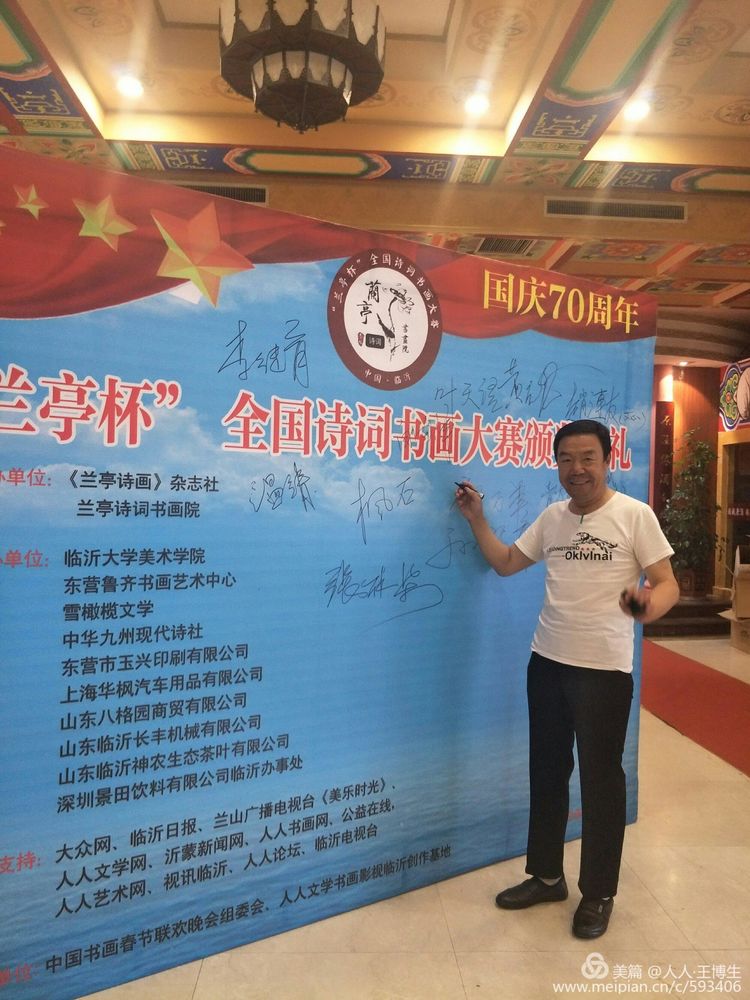 国庆70周年
"兰亭杯"全国诗词书画大赛
蘭亭
诗词
书画院
中国·临沂
李继育
兰亭杯” 全国诗词书画大赛颁奖
礼
温靖
枫石
办单位：《兰亭诗画》杂志社
兰亭诗词书画院
办单位：临沂大学美术学院
东营鲁齐书画艺术中心
雪橄榄文学
中华九州现代诗社
东营市玉兴印刷有限公司
上海华枫汽车用品有限公司
山东八格园商贸有限公司
山东临沂长丰机械有限公司
山东临沂神农生态茶叶有限公司
深圳景田饮料有限公司临沂办事处
支持：大众网、临沂日报、兰山广播电视台《美乐时光》、
人人文学网、沂蒙新闻网、人人书画网、公益在线，
人人艺术网、视讯临沂、人人论坛、临沂电视台
中国书画春节联欢晚会组委会、人人文学书画影视临沂创作基地
OkIvInai
美篇 @人人·王博生
www.meipian.cn/c/593406